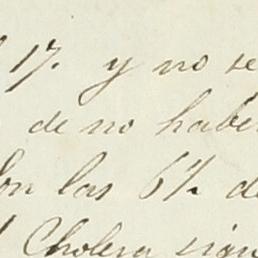 17. y no se
de no haber
las 6½ d
Cholera